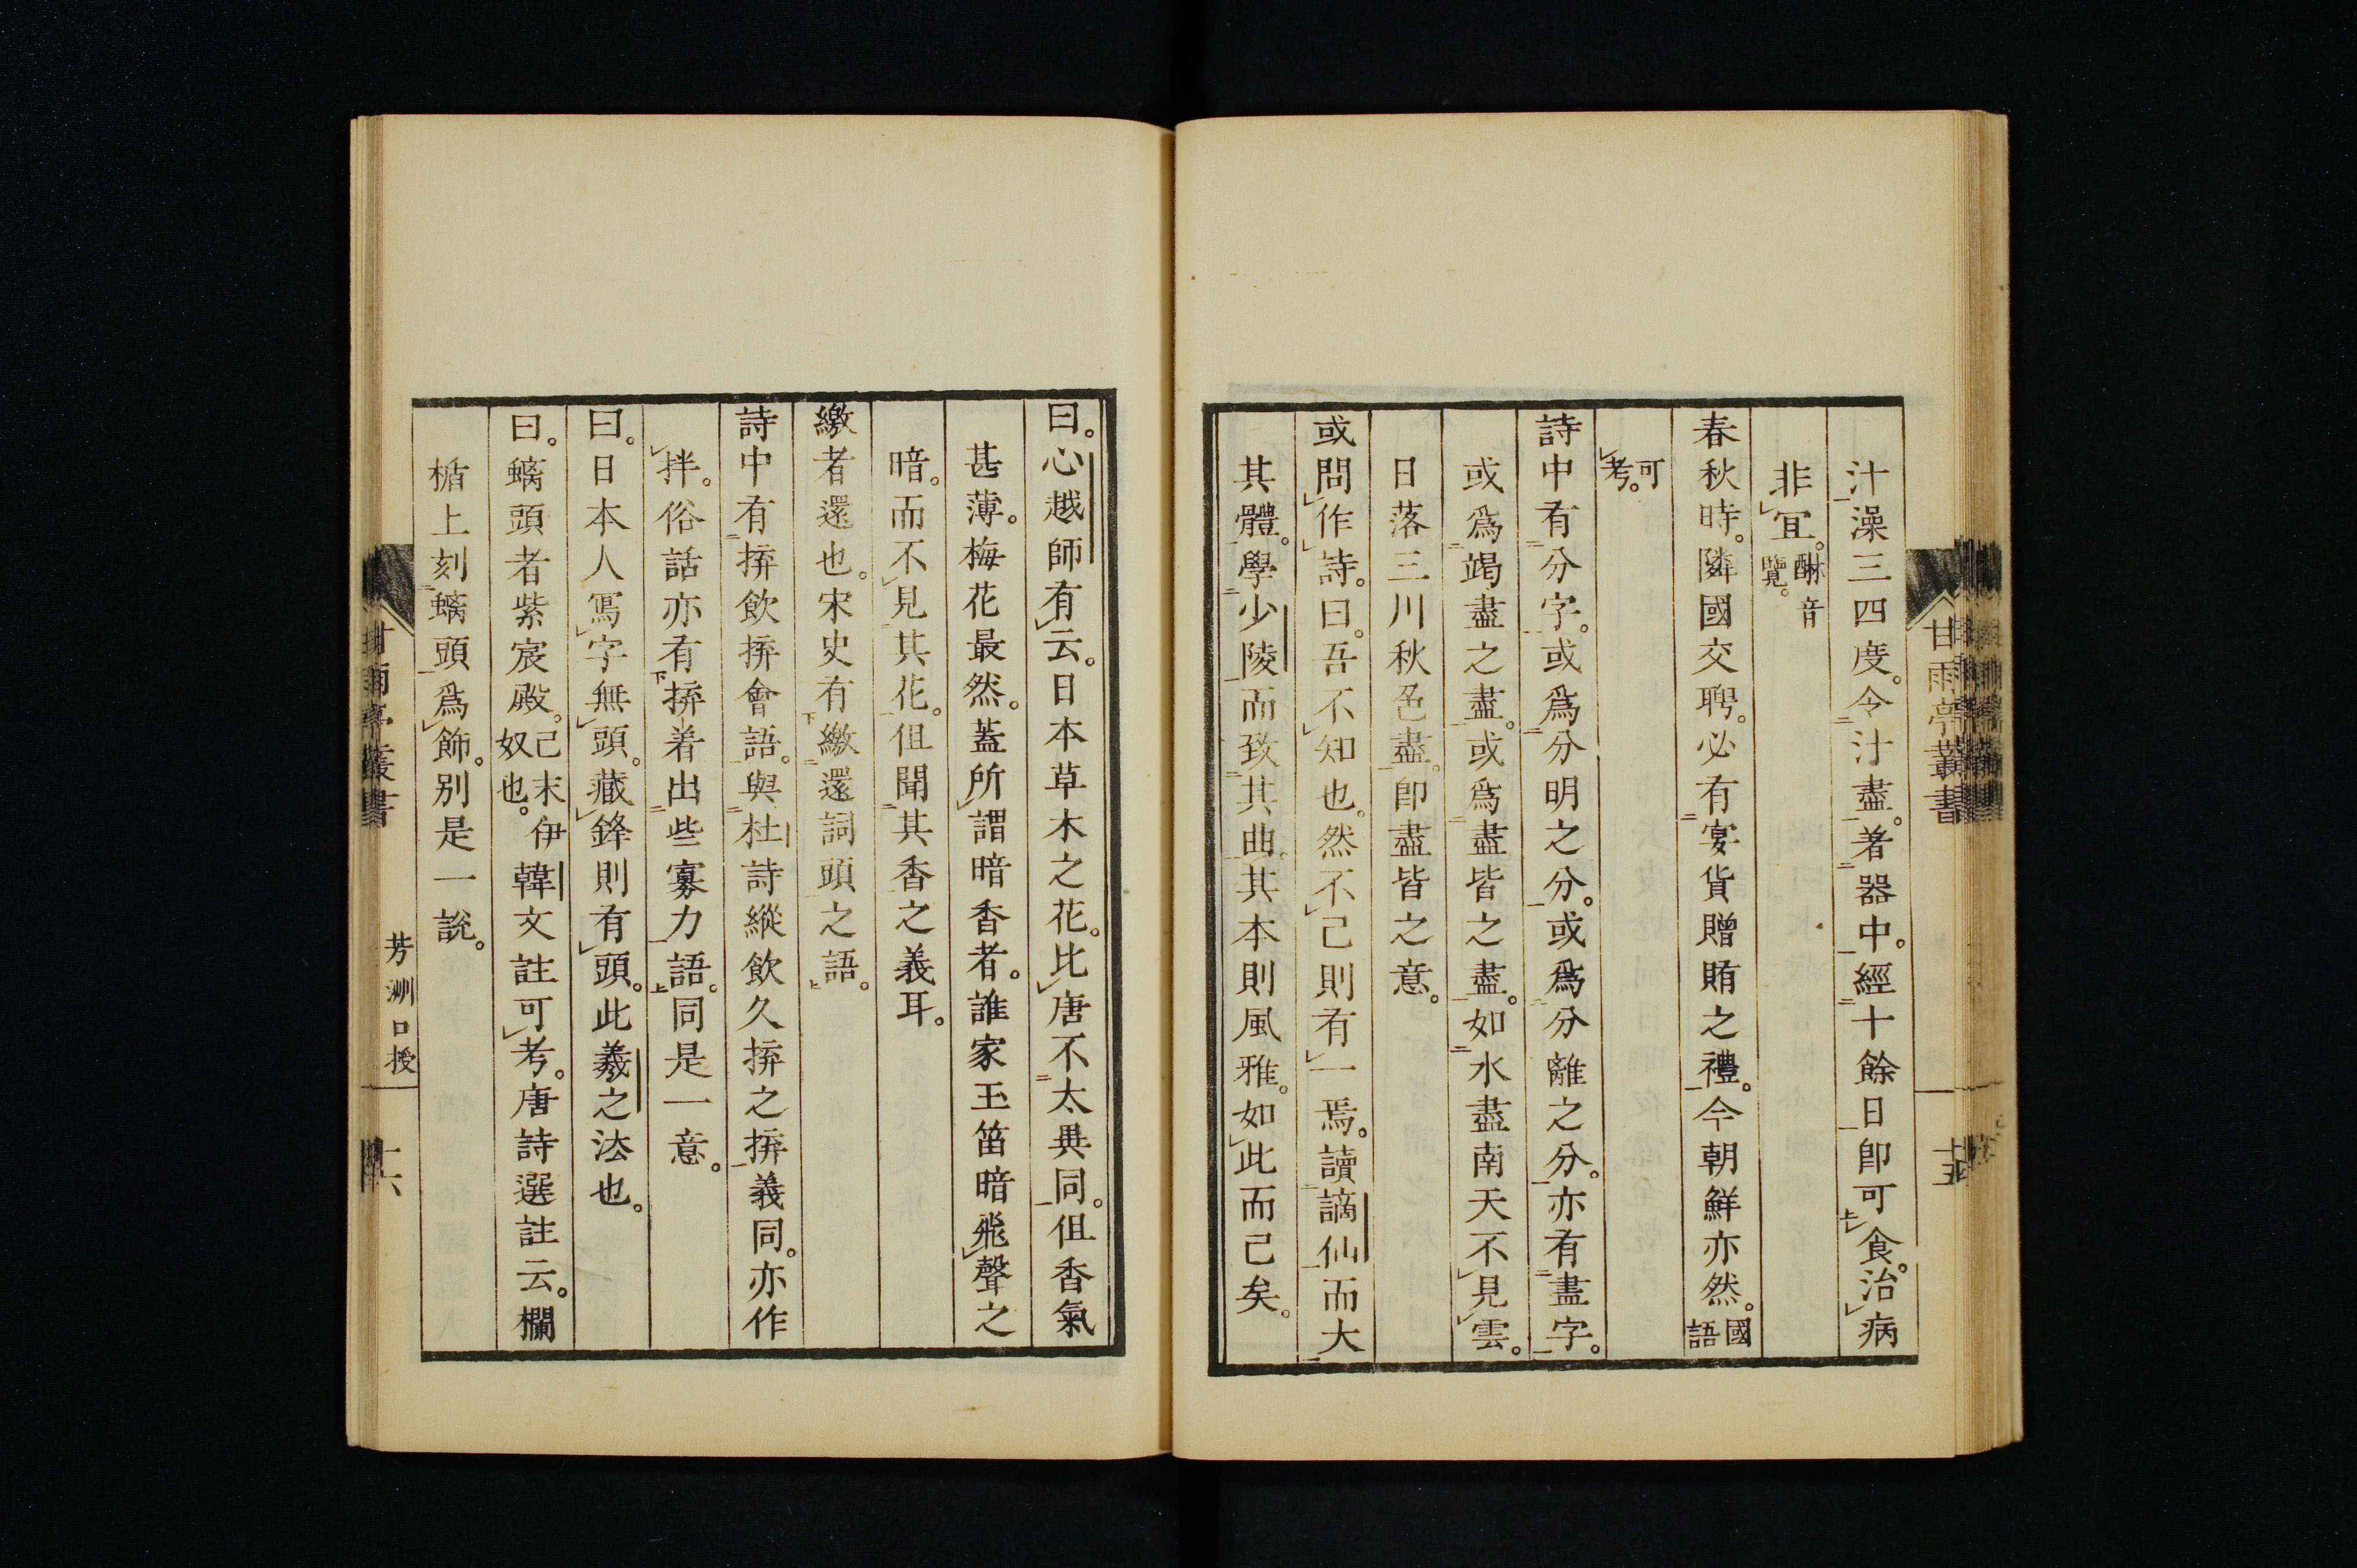 汁澡三四度。令汁盡。著器中。經十餘日即可食。治病
非冝。醂音覽。
春秋時。隣國交聘。必有宴貨贈賄之禮。今朝鮮亦然。國語
可考。
詩中有分字。或爲分明之分。或爲分離之分。亦有盡字。
或爲竭盡之盡。或爲盡皆之盡。如水盡南天不見雲。
日落三川秋色盡。卽盡皆之意。
或問作詩。曰。吾不知也。然不己則有一焉。讀謫仙而大
其體。學少陵而致其曲。其本則風雅。如此而己矣。
甘雨亭叢書
十五
曰。心越師有云。日本草木之花。比唐不太異同。但香氣
甚薄。梅花最然。蓋所謂暗香者。誰家玉笛暗飛聲之
暗。而不見其花。但聞其香之義耳。
繳者還也。宋史有繳還詞頭之語。
詩中有揜飲揜會語。與杜詩縱飲久揜之揜義同。亦作
拌。俗話亦有揜着出些寡力語。同是一意。
曰。日本人寫字無頭。藏鋒則有頭。此羲之法也。
曰。螭頭者紫宸殿。己末伊奴也。韓文註可考。唐詩選註云。欄
楯上刻螭頭爲飾。別是一說。
甘雨亭叢書
芳洲口授
十六